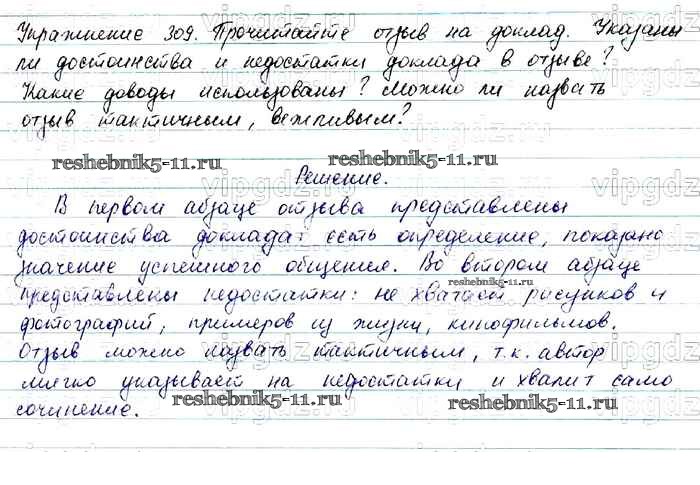 Упражнение 309. Прочитайте отзыв на доклад. Указаны
ли достоинства и недостатки доклада в отзыве?
Какие доводы использованы? Можно ли назвать
отзыв тактичным, вежливым?
reshebnik5-11.ru reshebnik5-11.ru
Решение.
В первом абзаце отзыва представлены
достоинства доклада: есть определение, показано
значение успешного общения. Во втором абзаце
reshebnik5-11.ru
представлены недостатки: не хватает рисунков и
фотографий, примеров из жизни, кинофильмов.
Отзыв можно назвать тактичным, т.к. автор
мягко указывает на недостатки и хвалит само
сочинение.
reshebnik5-11.ru reshebnik5-11.ru